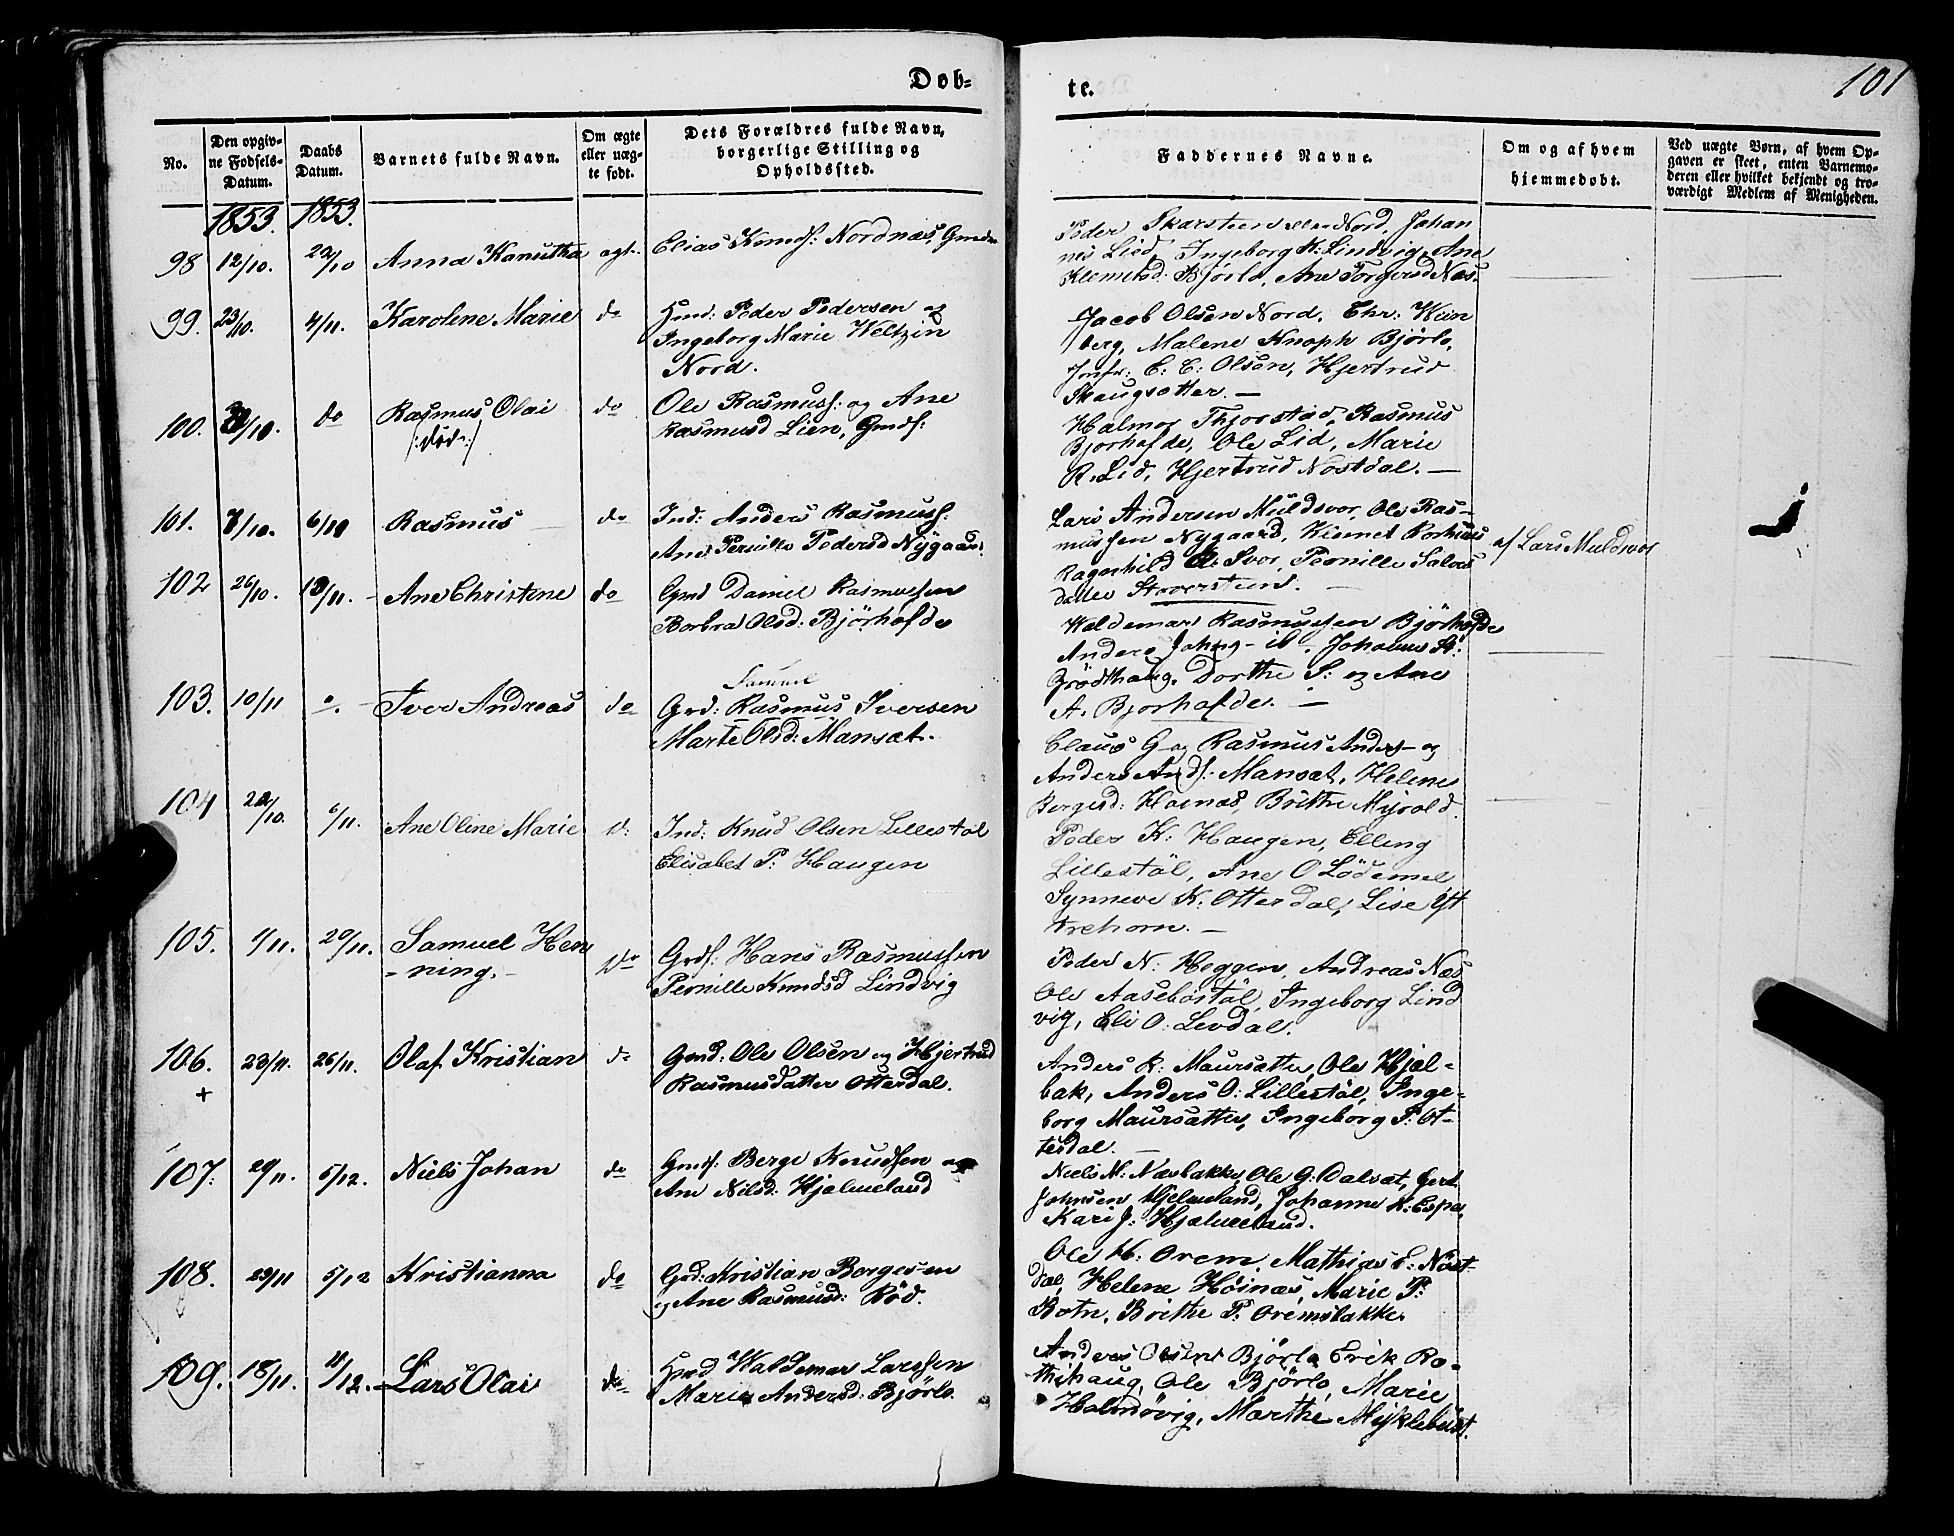 Døb-
te.
101
No.
Den opgiv-
ne Fødsels-
Datum.
Daabs
Datum.
Barnets fulde Navn.
Om ægte
eller uæg-
te født.
Dets Forældres fulde Navn,
borgerlige Stilling og
Opholdssted.
Faddernes Navne.
Om og af hvem
hjemmedøbt.
Ved uægte Børn, af hvem Op-
gaven er skeet, enten Barnemo-
deren eller hvilket bekjendt og tro-
værdigt Medlem af Menigheden.
1853. 1853.
98 12/10. 22/10 Anna Kanutha ægt.
Elias Knuds: Nordnæs, Gmdm
Peder Skarsteen Nord, Johan
nes Lied, Ingeborg K: Lindvig, Ane
Klemetsd: Bjørlo, Ane Torgersd Næs
99. 23/10. 4/11. Karolene Marie do
Hmd: Peder Pedersen og
Ingeborg Marie Weltzin
Nord.
Jacob Olsen Nord, Chr: Wein
berg, Malene Knoph Bjørlo,
Jmfr: C: C: Olsen, Hjertrud
Skaugsetter. —
100. /10. do Rasmus Olai do
/:død:/
Ole Rasmuss: og Ane
Rasmusd Lien, Gmds:
Halmor Thjorstad, Rasmus
Bjorhofde, Ole Lid, Marie
R. Lid, Hjertrud Nøstdal. —
101. 7/10. 6/11 Rasmus do
Ind: Anders Rasmuss:
Ane Pernille Pedersd Nygaard
Lars Andersen Muldsvor, Ole Ras-
mussen Nygaard, Klemet Rorhuus
Ragnhild A. Svor, Pernille Salomons
datter Staversteen. —
af Lars Muldsvor
102 26/10. 13/11. Ane Christene do
Gmd Daniel Rasmussen
Borbra Olsd: Bjørhofde
Waldemar Rasmussen Bjørhofde
Anders Johns- ib, Johannes St:
Grødthaug, Dorthe S: og Ane
A. Bjorhofde. —
103. 10/11 Iver Andreas do
Samuel
Grd: Rasmus Iversen
Marte Olsd: Mansæt.
Claus G- og Rasmus Anders- og
Anders Ands: Mansæt, Helene
Bergesd: Hoinæs, Brithe Myrold.
104 22/10. 6/11. Ane Oline Marie d:
Ind: Knud Olsen Lillestøl
Elisabet P: Haugen
Peder K: Haugen, Elling
Lillestøl, Ane O Lødemel
Synneve K: Otterdal, Lise Yt
trehorn. —
105. 1/11. 20/11. Samuel Hen
-ning. do
Grds: Hans Rasmussen
Pernille Knudsd Lindvig
Peder N: Heggen, Andreas Næs
Ole Aasebøstøl, Ingeborg Lind
vig, Eli O: Levdal.
106. 23/11. 26/11. Olaf Kristian do
+
Gmd: Ole Olsen og Hjertrud
Rasmusdatter Otterdal.
Anders R: Maursætter, Ole Hjæl-
bak, Anders O: Lillestøl, Inge-
borg Maursætter, Ingeborg P: Ot-
terdal. —
107. 20/11. 5/12. Niels Johan do
Gmds: Berge Knudsen og
Ane Nilsd: Hjelmeland
Niels M: Næsbakke, Ole G: Dalsæt, Gert
Johnsen Hjelmeland, Johanne K: Espe,
Kari J: Hjælmeland.
108. 29/11 5/12 Kristianna do
Grd: Kristian Bergesen
og Ane Rasmusd: Rød.
Ole H: Orem, Mathias E: Nøst-
dal, Helene Hoinæs, Marie P:
Botn, Brithe P: Oremsbakke
109. 18/11. 11/12. Lars Olai do
Hmd Waldemar Larssen
Marie Andersd: Bjørlo
Anders Olsen Bjørlo Erik Ro-
thihaug, Ole Bjørlo, Marie
Holmøvig, Marthe Myklebust.